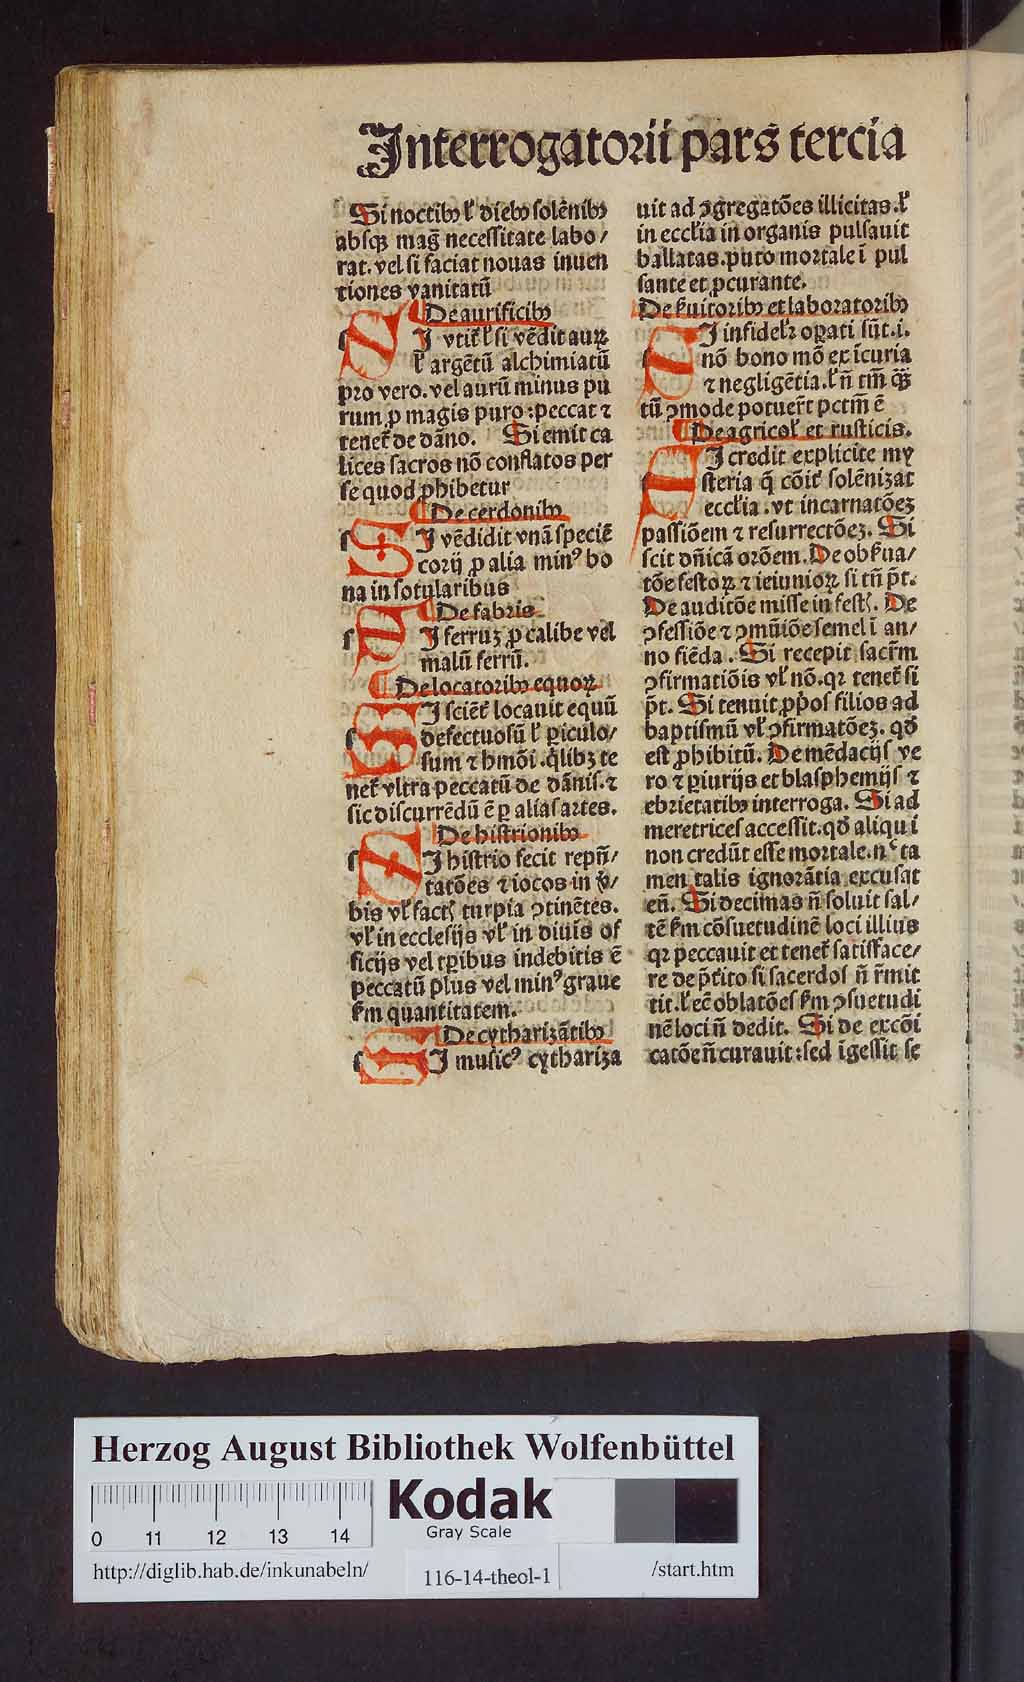 Interrogatorii pars tercia
Si noctibꝫ ľ diebꝫ solēnibꝫ
absqꝫ mag̃ necessitate labo/
rat. vel si faciat nouas inuen
tiones vanitatū
De aurificibꝫ
SI vtiť ľ si vēdit auꝝ
ľ argētū alchimiatū
pro vero. vel aurū minus pu
rum ꝓ magis puro : peccat ⁊
teneť de dāno. Si emit ca
lices sacros nō conflatos per
se quod ꝓhibetur
De cerdonibꝫ
SI vēdidit vnā speciē
corij ꝓ alia minꝰ bo
na in sotularibus
De fabris
SI ferruꝫ ꝓ calibe vel
malū ferrū.
De locatoribꝫ equoꝝ
SI sciēť locauit equū
defectuosū ľ ꝑiculo/
sum ⁊ hmōi .q̄libꝫ te
neť vltra peccatū de dānis. ⁊
sic discurrēdū ē ꝑ alias artes.
De histrionibꝫ
SI histrio fecit repn̄/
tatōes ⁊ iocos in v̄/
bis vľ factꝭ turpia ↄtinētes.
vľ in ecclesijs vľ in diuīs of
ficijs vel tꝑibus indebitis ē
peccatū plus vel minꝰ graue
ẜm quantitatem.
De cytharizātibꝫ
SI musicꝰ cythariza
uit ad ↄgregatōes illicitas .ľ
in eccľia in organis pulsauit
ballatas. puto mortale ī pul
sante et ꝓcurante.
De ẜuitoribꝫ et laboratoribꝫ
SI infideľr oꝑati sūt .i.
nō bono mō ex īcuria
⁊ negligētia .ľ n̄ tm̄ q̄ꝫ
tū ↄmode potuer̄t pctm̄ ē
De agricoľ et rusticis.
SI credit explicite my
steria q̄ cōiť solēnizat
eccľia . vt incarnatōeꝫ
passiōem ⁊ resurrectōeꝫ. Si
scit dn̄icā orōem. De obẜua/
tōe festoꝝ ⁊ ieiunioꝝ si tn̄ p̄t.
De auditōe misse in festꝭ. De
ↄfessiōe ⁊ ↄmūiōe semel ī an/
no fiēda . Si recepit sacr̄m
ↄfirmatiōis vľ nō. qꝛ teneť si
p̄t. Si tenuit ꝓp̄os filios ad
baptismū vľ ↄfirmatōeꝫ. qđ
est ꝓhibitū. De mēdacijs ve
ro ⁊ ꝑiurijs et blasphemijs ⁊
ebrietatibꝫ interroga. Si ad
meretrices accessit. qđ aliqui
non credūt esse mortale. nᶜ ta
men talis ignorātia excusat
eū. Si decimas n̄ soluit sal/
tē ẜm cōsuetudinē loci illius
qꝛ peccauit et teneť satisface/
re de p̄t̄ito si sacerdos n̄ r̄mit
tit. ľ eē oblatōes ẜm ↄsuetudi
nē loci n̄ dedit. Si de excōi
catōe n̄ curauit : sed īgessit se
Herzog August Bibliothek Wolfenbüttel
0 11 12 13 14
Kodak
Gray Scale
http://diglib.hab.de/inkunabeln/ 116-14-theol-1 /start.htm